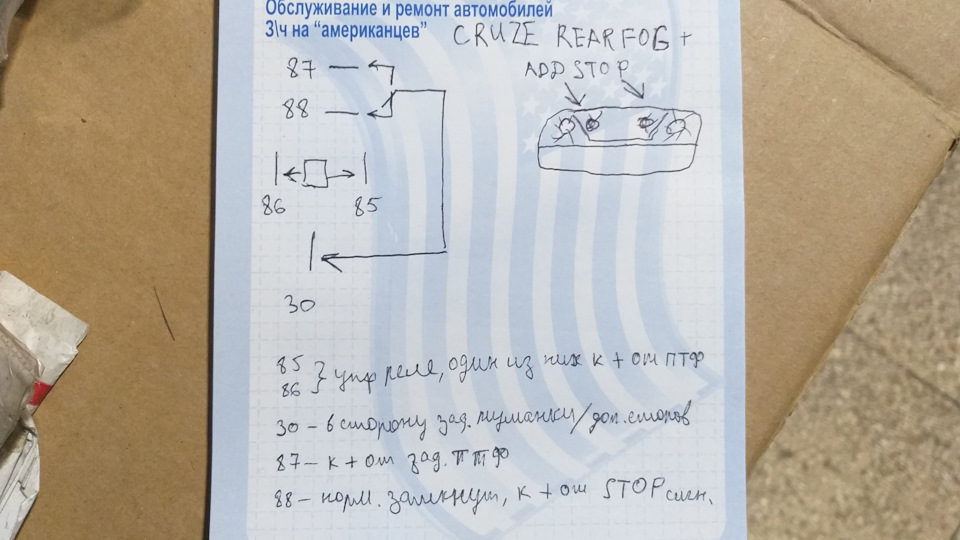 Обслуживание и ремонт автомобилей
З\ч на “американцев”
CRUZE REAR FOG +
ADD STOP
87
88
86
85
30
85
86 } упр реле, один из них к + от ПТФ
30 – в сторону зад. туманки/доп. стопов
87 – к + от зад. ПТФ
88 – норм. замкнут, к + от STOP сигн.